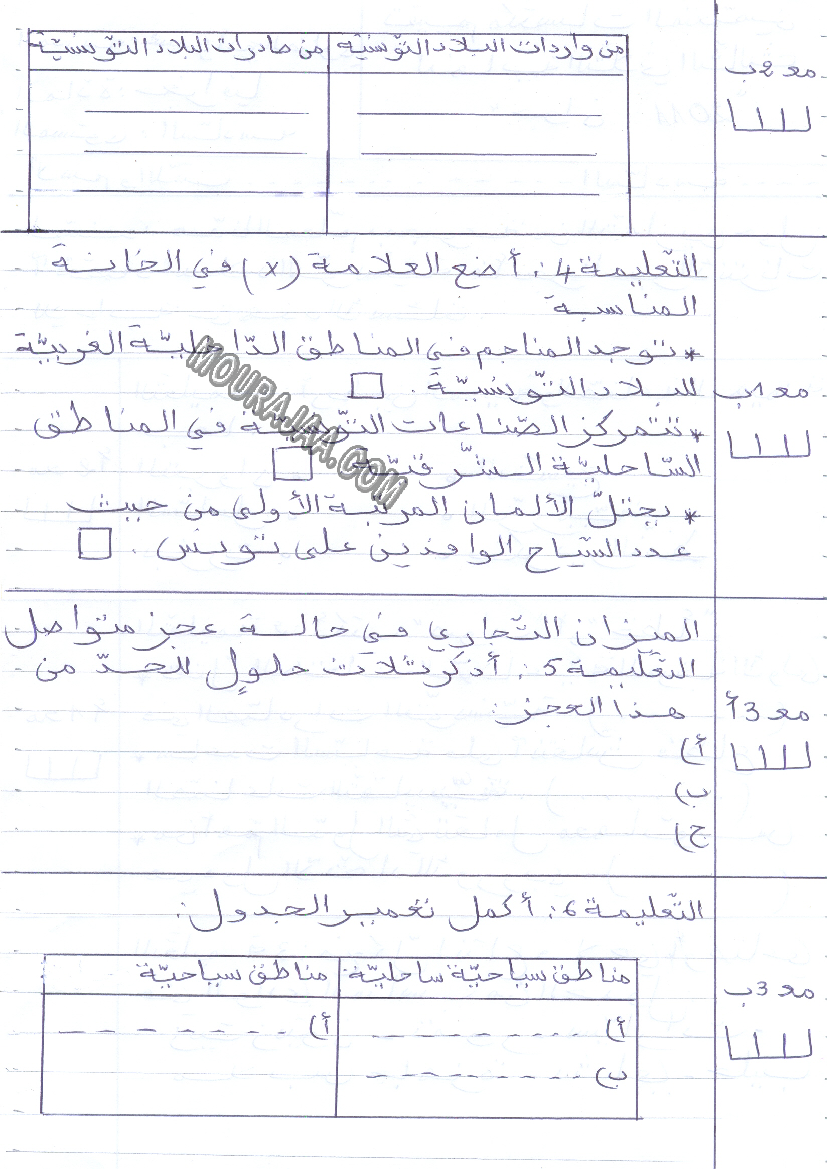 مع 2ب
من واردات البلاد التّونسيّة
من صادرات البلاد التّونسيّة
التّعليمة 4: أضع العلامة (x) في الخانة
المناسبة
* توجد المناجم في المناطق الدّاخليّة الغربيّة
للبلاد التّونسيّة .
مع 1ب
* تتمركز الصّناعات التّونسيّة في المناطق
السّاحليّة الشّرقيّة
* يحتلّ الألمان المرتبة الأولى من حيث
عدد السّياح الوافدين على تونس .
الميزان التّجاري في حالة عجز متواصل
التّعليمة 5: أذكر ثلاث حلولٍ للحدّ من
هذا العجز:
مع 3أ
أ)
ب)
ج)
التّعليمة 6: أكمل تعمير الجدول:
مع 3ب
مناطق سياحيّة ساحليّة
مناطق سياحيّة
أ) أ)
ب)
MOURAJAA.COM